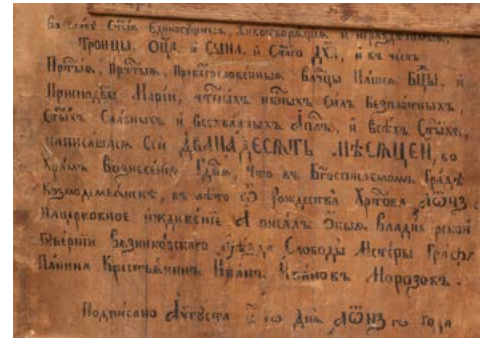 Во славу Ст҃ыѧ Единосущныѧ, Животворѧщиѧ и нераздѣлимыѧ
Троицы, Оц҃а и Сн҃а, и Ст҃аго Дх҃а, и въ честь
Прч҃тыѧ, Прест҃ыѧ, Преблгⷭ҇ословенныѧ Влчⷣ҇цы Нашеѧ Бц҃ы, и
Приснодв҃ы Марїи, чтⷭ҇ныхъ нб҃ныхъ Силъ Безплотныхъ
Ст҃ыхъ Славныхъ и Всехвалныхъ Апⷭ҇лъ, и Всѣхъ Ст҃ыхъ,
написашасѧ Сїи ДВАНАДЕСѦТЬ МѢСѦЦЕЙ, во
Храмъ Вознесенїѧ Гдⷭ҇нѧ, что въ Бг҃оспасаемомъ Градѣ
Козмодемьѧнскѣ, въ лѣто ѿ Рождества Хрⷭ҇това
На церковное иждивенїе А писалъ Владимирской
Губернїи Вѧзниковскаго Уѣзда Слободы Мстеры Графа
Панина Крестьѧнинъ Иванъ Ивановъ Морозовъ.
Подписано Аѵгуста дна года